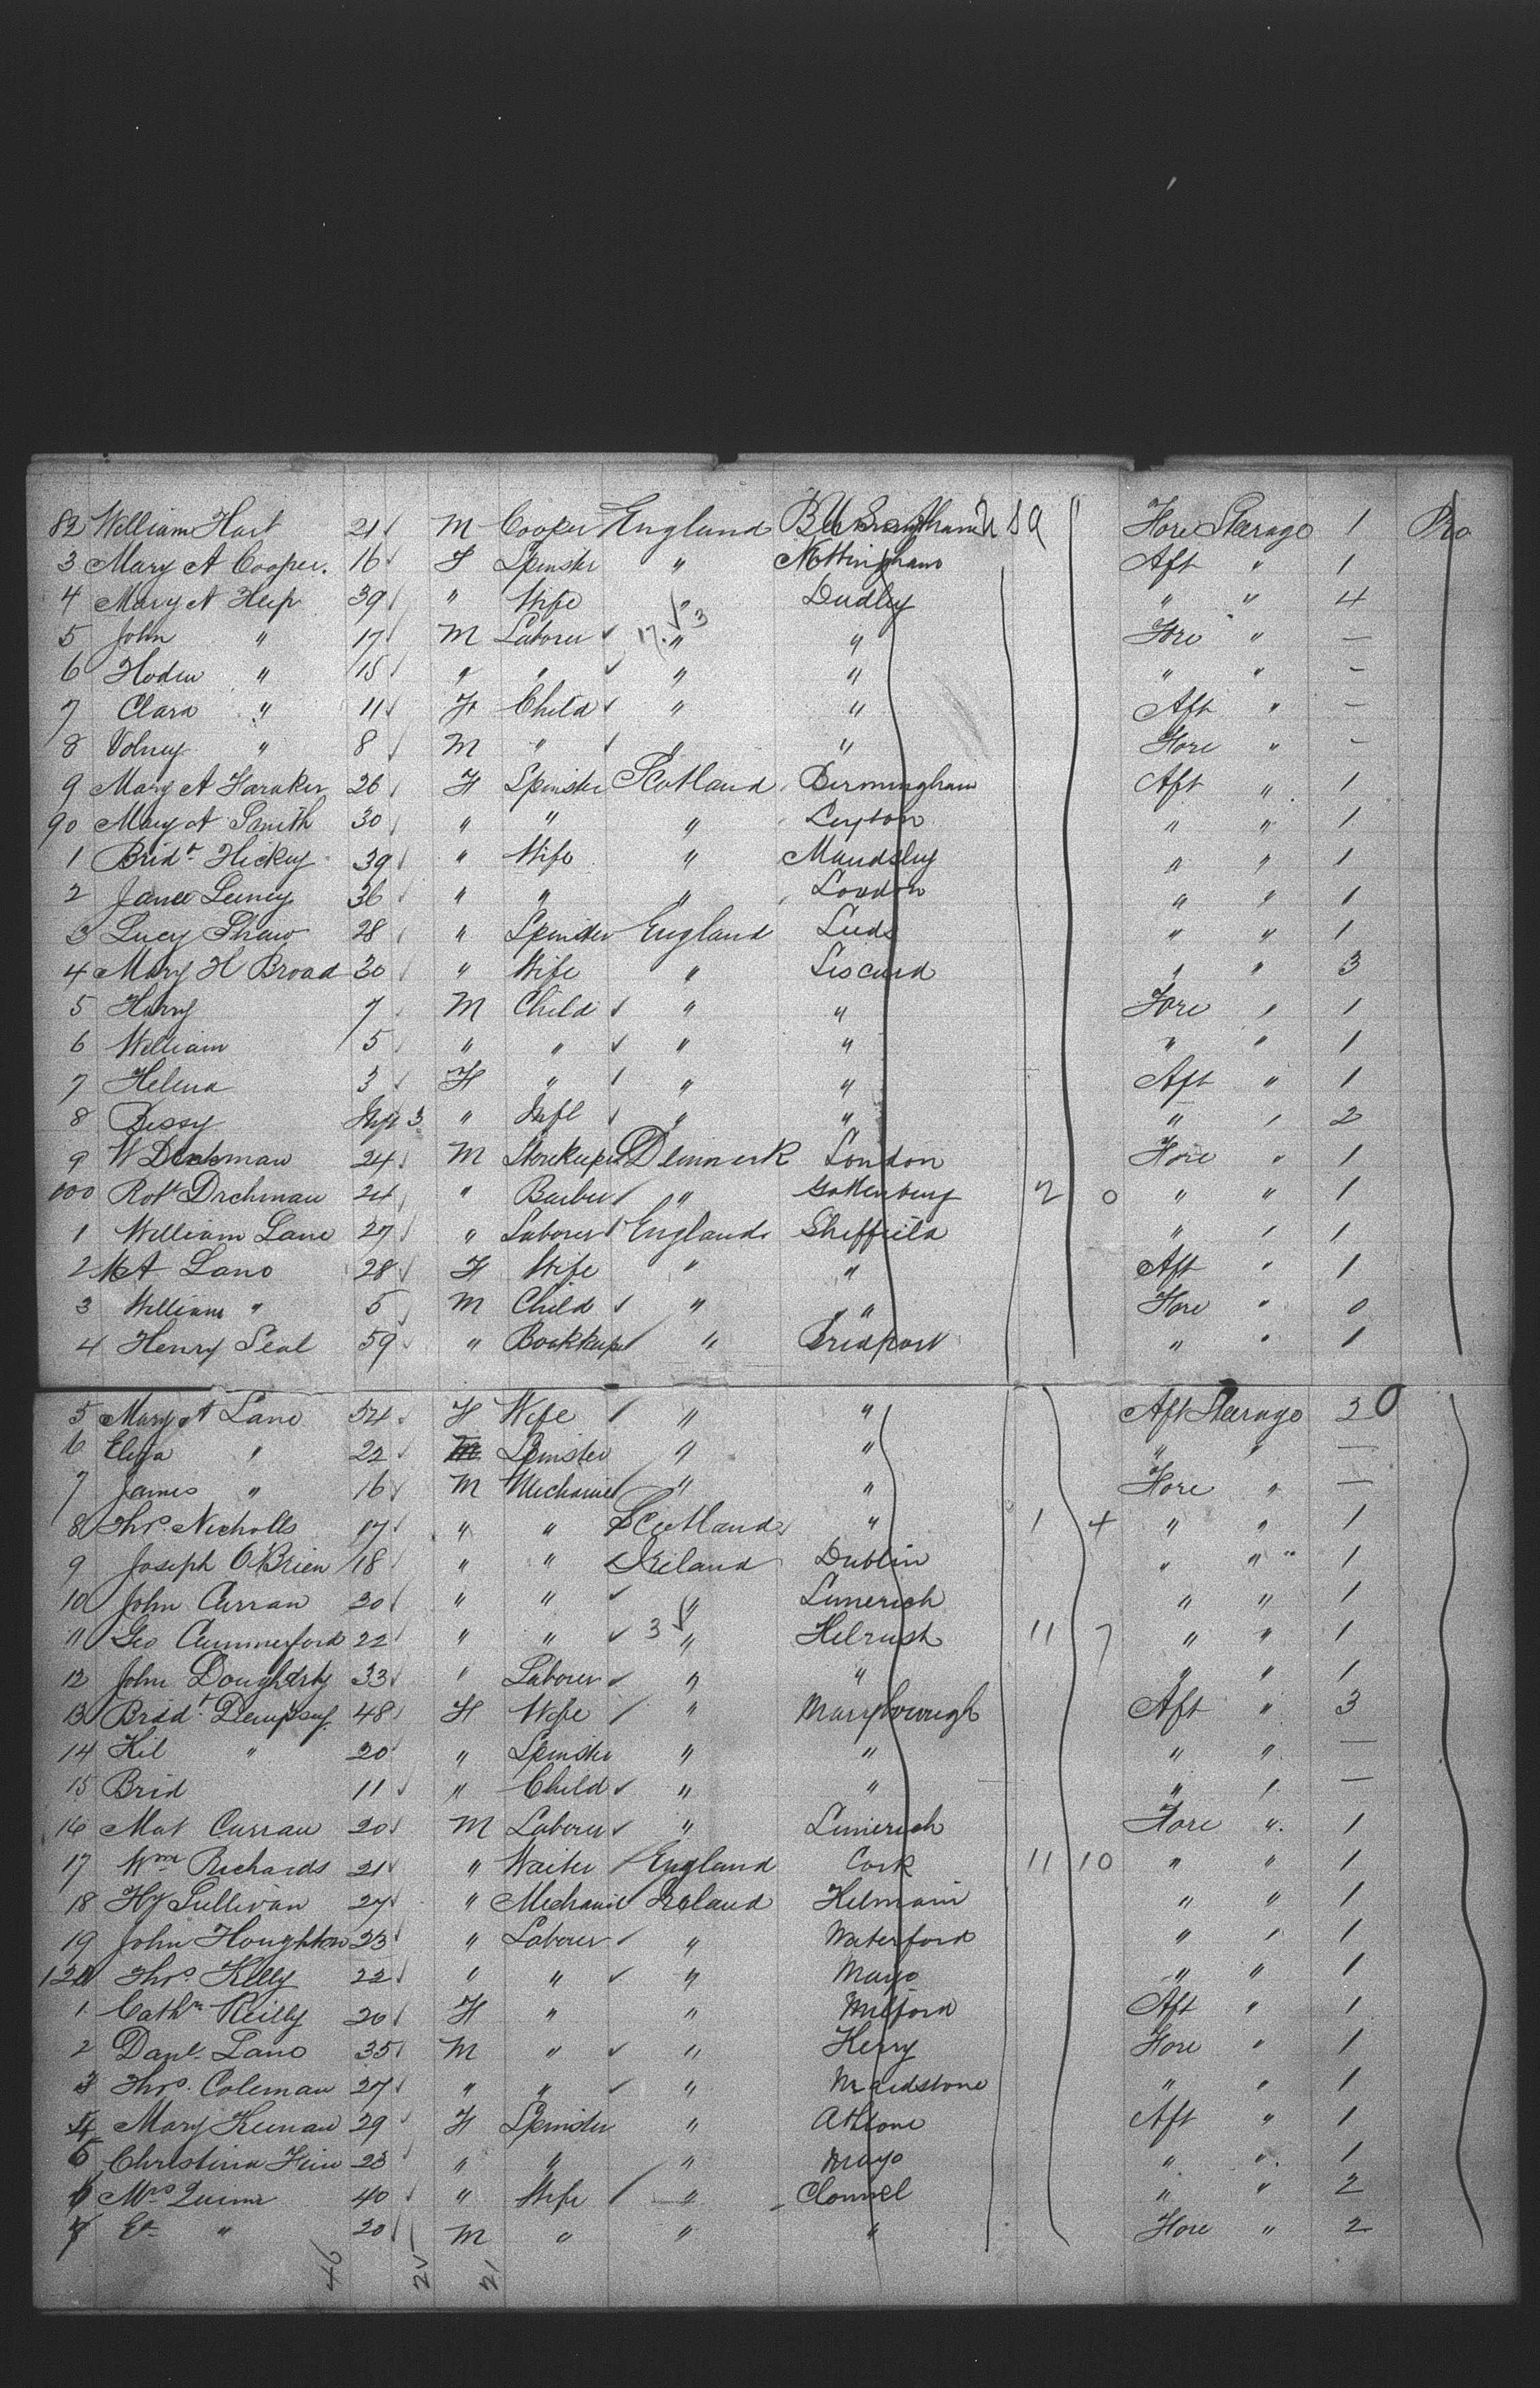 82 William Hart 21 M Cooper England Birmingham U S A Fore Steerage 1 Pro
3 Mary A Cooper. 16 F Spinster " Nottingham Aft " 1
4 Mary A Heep 39 " Wife " Dudley " " 4
5 John " 17 M Laborer " " Fore " —
6 Hoden " 15 " " " " " " —
7 Clara " 11 F Child " " Aft " —
8 Volney " 8 M " " " Fore " —
9 Mary A Haraker 26 F Spinster Scotland Birmingham Aft " 1
90 Mary A Smith 30 " " " Leyton " " 1
1 Bridt Hickey 39 " Wife " Maudsley " " 1
2 Jane 36 " " " London " " 1
3 Lucy Shaw 28 " Spinster England Leeds " " 1
4 Mary H Broad 30 " Wife " Liscard " " 3
5 Harry 7 M Child " " Fore " 1
6 William 5 " " " " " " 1
7 Helena 3 F " " " Aft " 1
8 Bessy 3 " Inft " " " " 2
9 W 24 M Storekeeper Denmark London Fore " 1
100 Robt Drchman 24 " Barber " Gottenburg 2 0 " " 1
1 William Lane 27 " Laborer England Sheffield " " 1
2 M A Lane 28 F Wife " " Aft " 1
3 William " 5 M Child " " Fore " 0
4 Henry Seal 59 " Bookkeeper " Bridport " " 1
5 Mary A Lane 54 F Wife " " Aft Steerage 3 0
6 Eliza " 22 Spinster " " " " —
7 James " 16 M Mechanic " " Fore " —
8 Thos. Nicholls 17 " " Scotland " 1 4 " " 1
9 Joseph O'Brien 18 " " Ireland Dublin " " 1
10 John Curran 20 " " " Limerick " " 1
11 Geo Cummerford 22 " " 3 " Kilrush 11 7 " " 1
12 John Dougherty 33 " Laborer " " " " 1
13 Bridt Dempsey 48 F Wife " Maryborough Aft " 3
14 Kil " 20 " Spinster " " " " —
15 Brid 11 " Child " " " " —
16 Mat Curran 20 M Laborer " Limerick Fore " 1
17 Wm Richards 21 " Waiter England Cork 11 10 " " 1
18 Hy Sullivan 27 " Mechanic Ireland Kilmain " " 1
19 John Houghton 23 " Laborer " Waterford " " 1
120 Thos Kelly 22 " " " Mayo " " 1
1 Cathn Reilly 20 F " " Milford Aft " 1
2 Danl. Lane 35 M " " Kerry Fore " 1
3 Thos. Coleman 27 " " " Maidstone " " 1
4 Mary Keenan 29 F Spinster " Athlone Aft " 1
5 Christina 23 " " " Mayo " " 1
6 Mrs Quinn 40 " Wife " Clonmel " " 2
7 " 20 M " " " Fore " 2
46 25 21